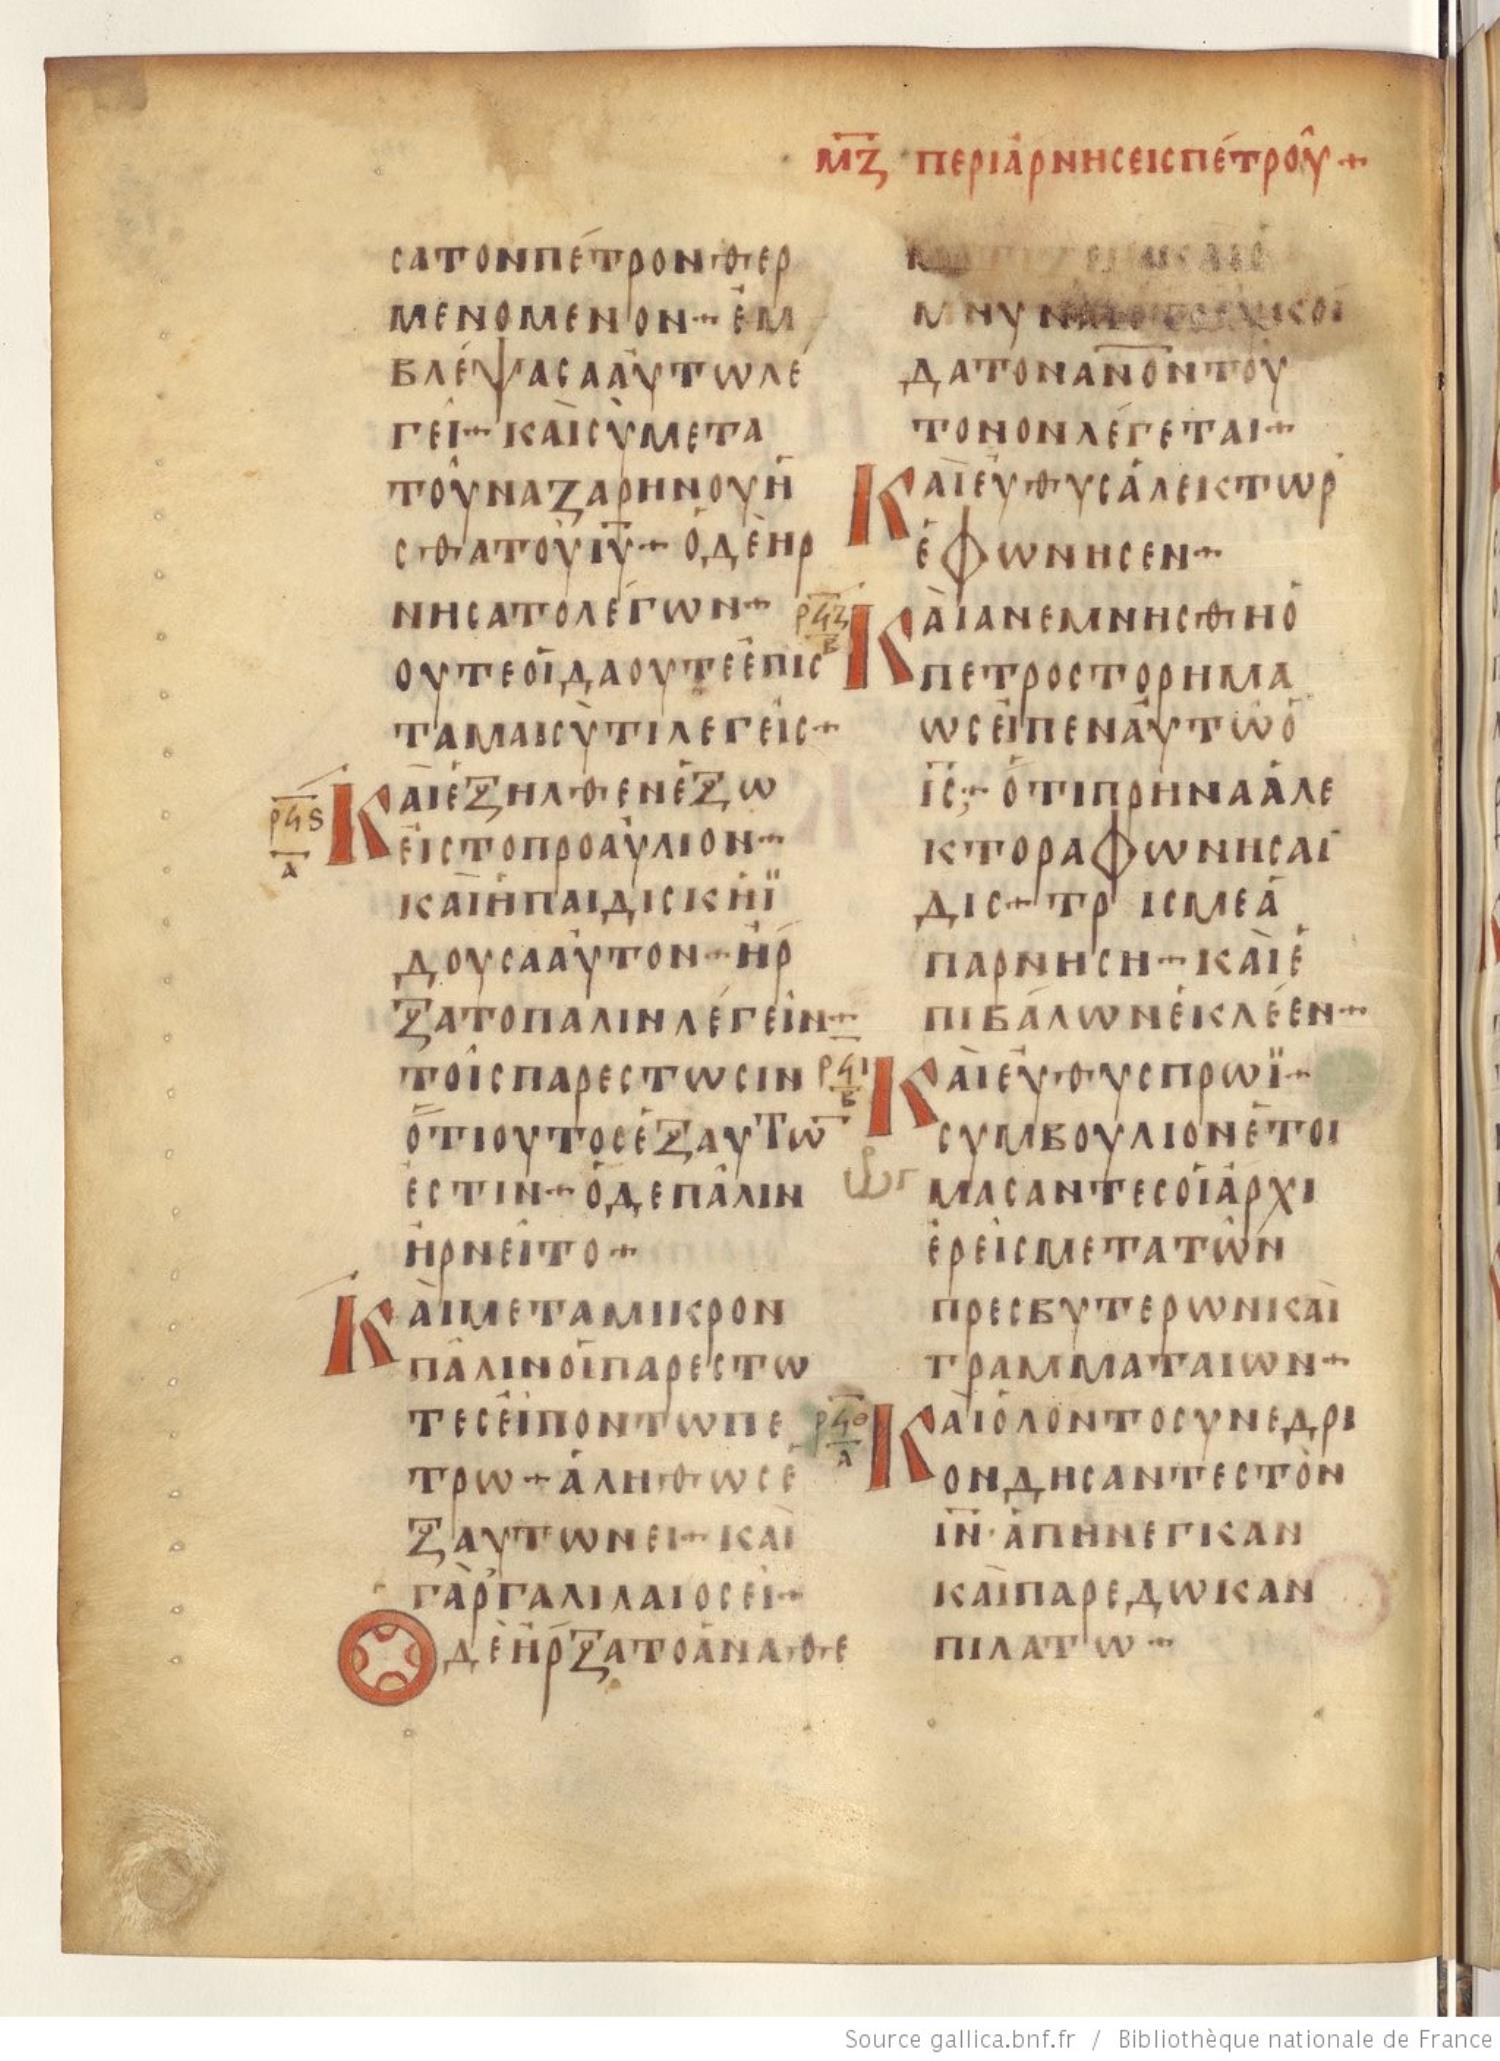 ΜΖ ΠΕΡΙΑΡΝΗСΕΙСΠΕΤΡΟΥ+
СΑΤΟΝΠΕΤΡΟΝΘΕΡ
ΜΕΝΟΜΕΝΟΝ+ΕΜ
ΒΛΕΨΑСΑΑΥΤΩΛΕ
ΓΕΙ+ΚΑΙСΥΜΕΤΑ
ΤΟΥΝΑΖΑΡΗΝΟΥΗ
СΘΑΤΟΥΙΥ+ΟΔΕΗΡ
ΝΗСΑΤΟΛΕΓΩΝ+
ΟΥΤΕΟΙΔΑΟΥΤΕΕΠΙС
ΤΑΜΑΙСΥΤΙΛΕΓΕΙС+
ΡϤS
Α
ΚΑΙΕΞΗΛΘΕΝΕΞΩ
ΕΙСΤΟΠΡΟΑΥΛΙΟΝ+
ΚΑΙΗΠΑΙΔΙСΚΗΪ
ΔΟΥСΑΑΥΤΟΝ+ΗΡ
ΞΑΤΟΠΑΛΙΝΛΕΓΕΙΝ+
ΤΟΙСΠΑΡΕСΤΩСΙΝ
ΟΤΙΟΥΤΟСΕΞΑΥΤΩ̅
ΕСΤΙΝ+ΟΔΕΠΑΛΙΝ
ΗΡΝΕΙΤΟ+
ΚΑΙΜΕΤΑΜΙΚΡΟΝ
ΠΑΛΙΝΟΙΠΑΡΕСΤΩ
ΤΕСΕΙΠΟΝΤΩΠΕ
ΤΡΩ+ΑΛΗΘΩСΕ
ΞΑΥΤΩΝΕΙ+ΚΑΙ
ΓΑΡΓΑΛΙΛΑΙΟСΕΙ+
ΟΔΕΗΡΞΑΤΟΑΝΑΘΕ
ΜΝΥΝΑΙ
ΔΑΤΟΝΑΝΟΝΤΟΥ
ΤΟΝΟΝΛΕΓΕΤΑΙ+
ΚΑΙΕΥΘΥСΑΛΕΚΤΩΡ
ΕΦΩΝΗСΕΝ+
ΡϤΖ
Β
ΚΑΙΑΝΕΜΝΗСΘΗΟ
ΠΕΤΡΟСΤΟΡΗΜΑ
ΩСΕΙΠΕΝΑΥΤΩΟ
ΙС+ΟΤΙΠΡΗΝΑΑΛΕ
ΚΤΟΡΑΦΩΝΗСΑΙ
ΔΙС+ΤΡ ΙСΜΕΑ
ΠΑΡΝΗСΗ+ΚΑΙΕ
ΠΙΒΑΛΩΝΕΚΛΕΕΝ+
ΡϤΙ
Β
ΚΑΙΕΥΘΥСΠΡΩΪ+
СΥΜΒΟΥΛΙΟΝΕΤΟΙ
ΜΑСΑΝΤΕСΟΙΑΡΧΙ
ΕΡΕΙСΜΕΤΑΤΩΝ
ΠΡΕСΒΥΤΕΡΩΝΚΑΙ
ΓΡΑΜΜΑΤΑΙΩΝ+
ΡϤΘ
Α
ΚΑΙΟΛΟΝΤΟСΥΝΕΔΡΙ
ΟΝΔΗСΑΝΤΕСΤΟΝ
ΙΝ·ΑΠΗΝΕΓΚΑΝ
ΚΑΙΠΑΡΕΔΩΚΑΝ
ΠΙΛΑΤΩ+
Source gallica.bnf.fr / Bibliothèque nationale de France